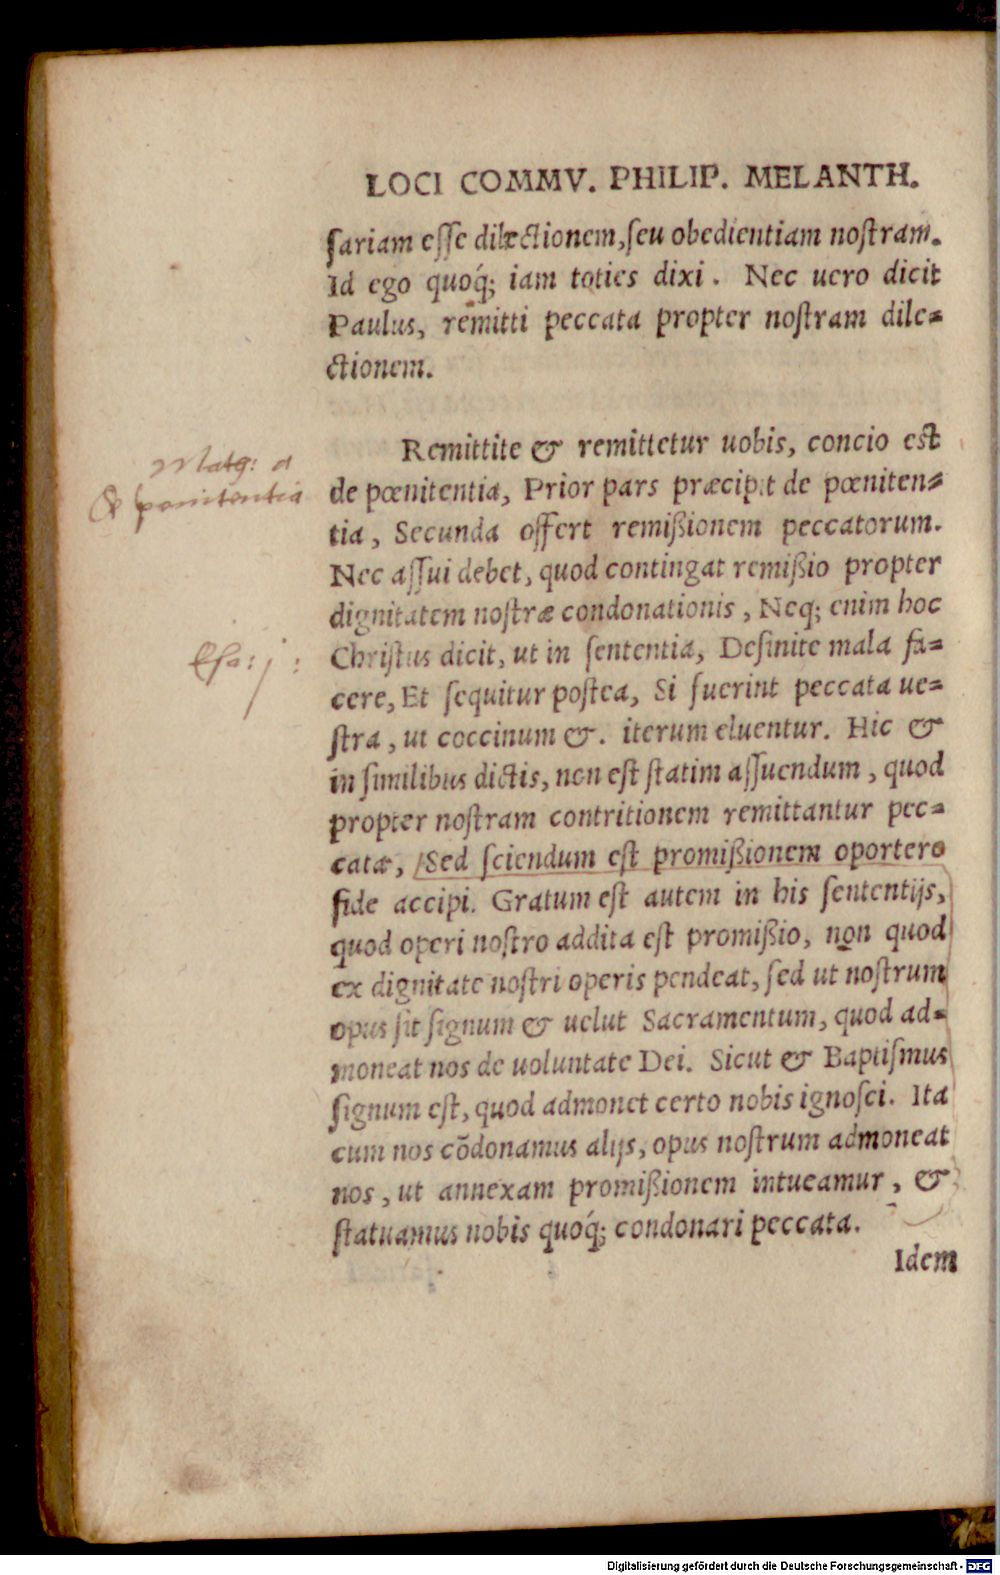 LOCI COMMV. PHILIP. MELANTH.
ſariam eſſe dilectionem, ſeu obedientiam noſtram.
Id ego quoq́; iam toties dixi. Nec uero dicit
Paulus, remitti peccata propter noſtram dile=
ctionem.
Remittite & remittetur uobis, concio est
de pœnitentia, Prior pars præcipit de pœniten=
tia, Secunda offert remißionem peccatorum.
Nec aſſui debet, quod contingat remißio propter
dignitatem noſtræ condonationis, Neq; enim hoc
Chriſtus dicit, ut in ſententia, Deſinite mala fa=
cere, Et ſequitur poſtea, Si fuerint peccata ue=
ſtra, ut coccinum &. iterum eluentur. Hic &
in ſimilibus dictis, non eſt ſtatim aſſuendum, quod
propter noſtram contritionem remittantur pec=
cata, Sed ſciendum eſt promißionem oportere
fide accipi. Gratum eſt autem in his ſententijs,
quod operi noſtro addita eſt promißio, non quod
ex dignitate noſtri operis pendeat, ſed ut noſtrum
opus ſit ſignum & uelut Sacramentum, quod ad=
moneat nos de uoluntate Dei. Sicut & Baptiſmus
ſignum eſt, quod admonet certo nobis ignoſci. Ita
cum nos cōdonamus alijs, opus noſtrum admoneat
nos, ut annexam promißionem intueamur, &
ſtatuamus nobis quoq́; condonari peccata.
Idem
pœnitentia
Esa: j:
Digitalisierung gefördert durch die Deutsche Forschungsgemeinschaft - DFG